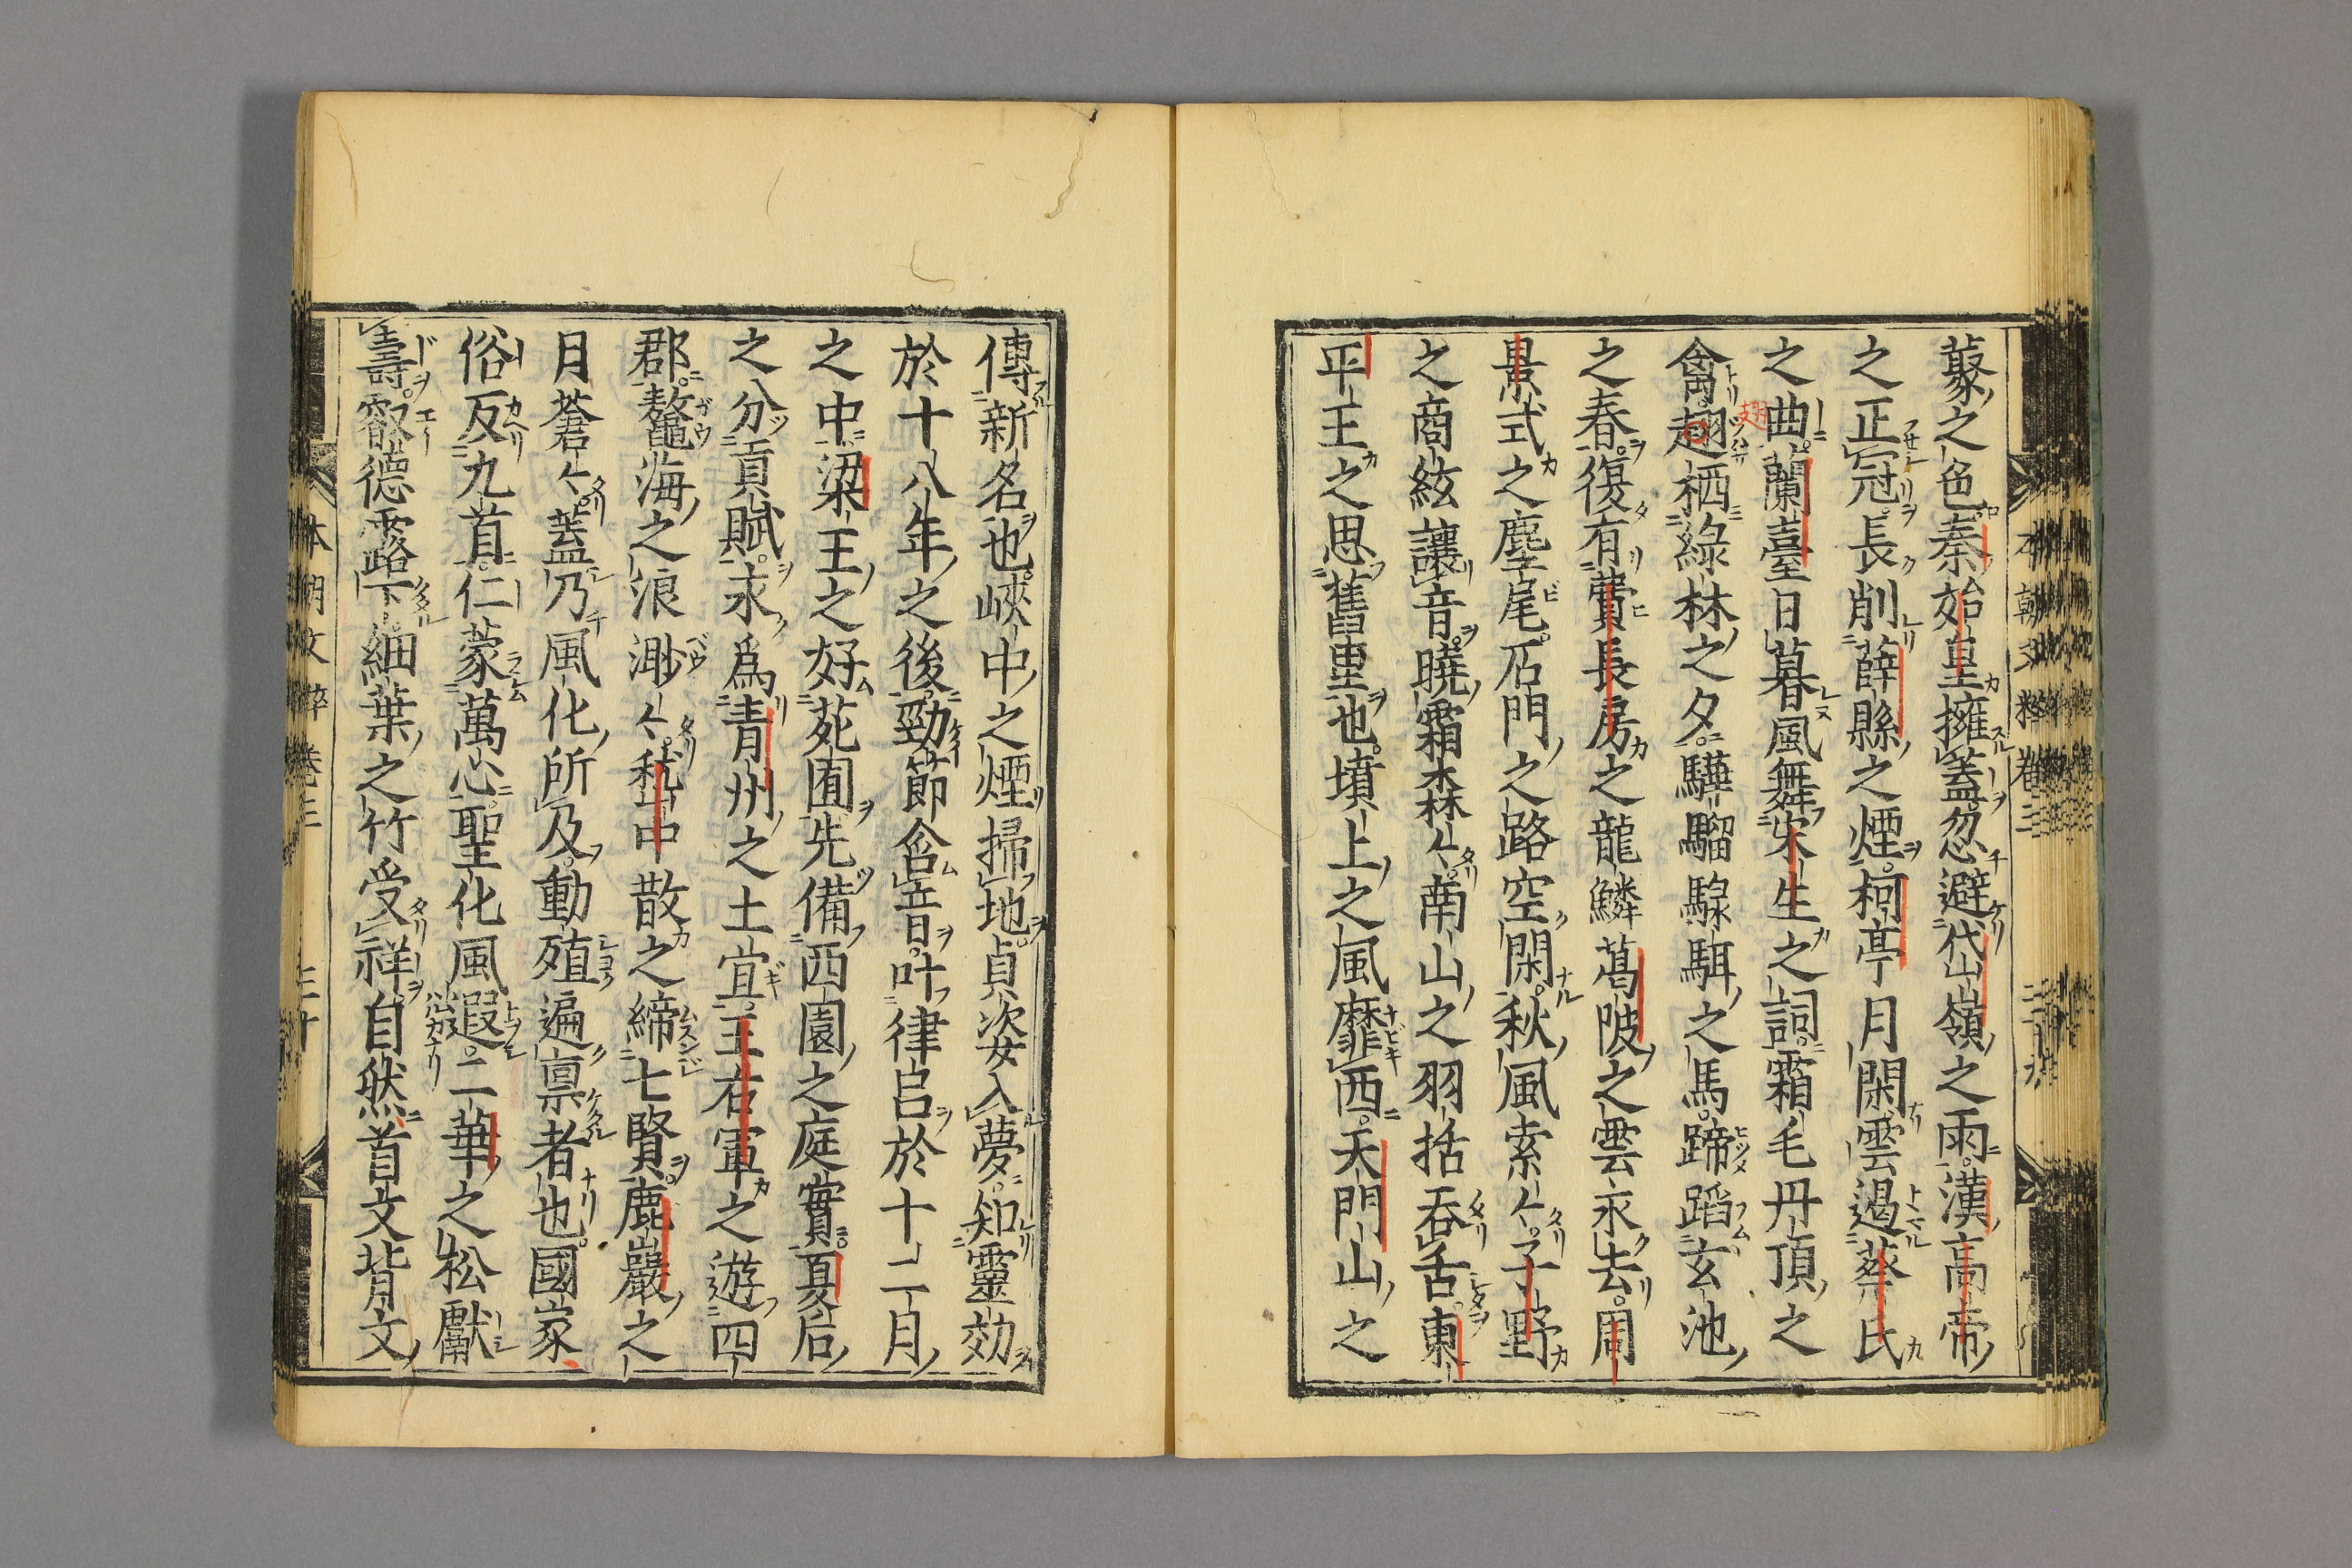 藂之色秦始皇擁蓋忽避岱嶺之雨漢高帝
之正冠長削薜縣之煙柯亭月閑雲遏蔡氏
之曲蘭臺日暮風舞宋生之詞霜毛丹頂之
禽翅栖綠林之夕驊騮騄駬之馬蹄蹈玄池
之春復有費長房之龍鱗葛陂之雲永去周
景式之塵尾石門之路空閑秋風索〻子野
之商絃讓音曉霜森〻南山之羽括吞舌東
平王之思舊里也墳上之風靡西天門山之
本朝文粹卷三 二十九
傳新名也峽中之煙掃地貞姿入夢知靈効
於十八年之後勁節含音叶律呂於十二月
之中梁王之好苑囿先備西園之庭實夏后
之分貢賦求爲青州之土宜王右軍之遊四
郡鼇海之浪渺〻嵆中散之締七賢鹿巖之
月蒼〻蓋乃風化所及動殖遍禀者也國家
俗反九首仁蒙萬心聖化風遐二華之松獻
壽叡德露下細葉之竹受祥自然首文背文
本朝文粹卷三 三十